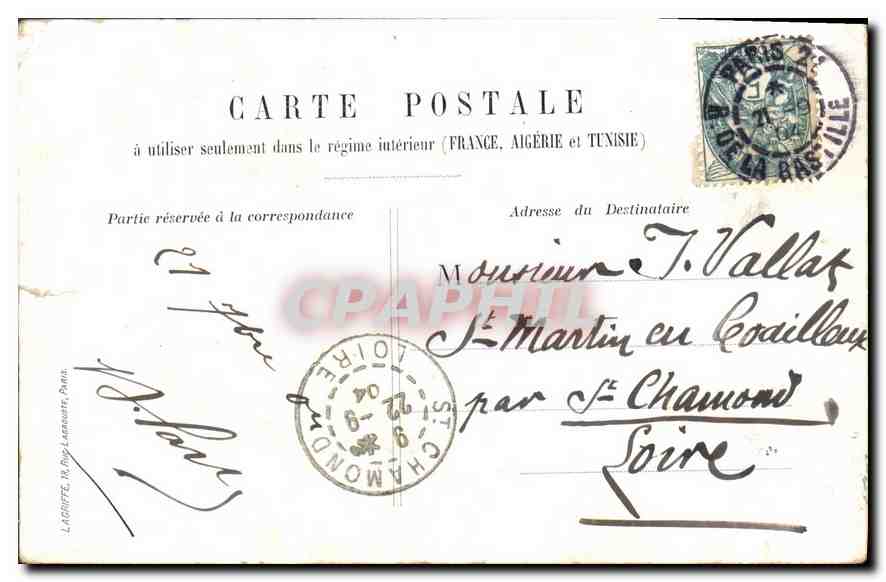 CARTE POSTALE
à utiliser seulement dans le régime intérieur (FRANCE, ALGÉRIE et TUNISIE)
Partie réservée à la correspondance
Adresse du Destinataire
21 7bre
Monsieur J. Vallat
St Martin en Coailleux
par St Chamond
Loire
PARIS
R. DE LA BASTILLE
ST CHAMOND
LOIRE
22 -9
04
LAGRIFFE, 18, Rue Labrouste, Paris.
CPAPHIL